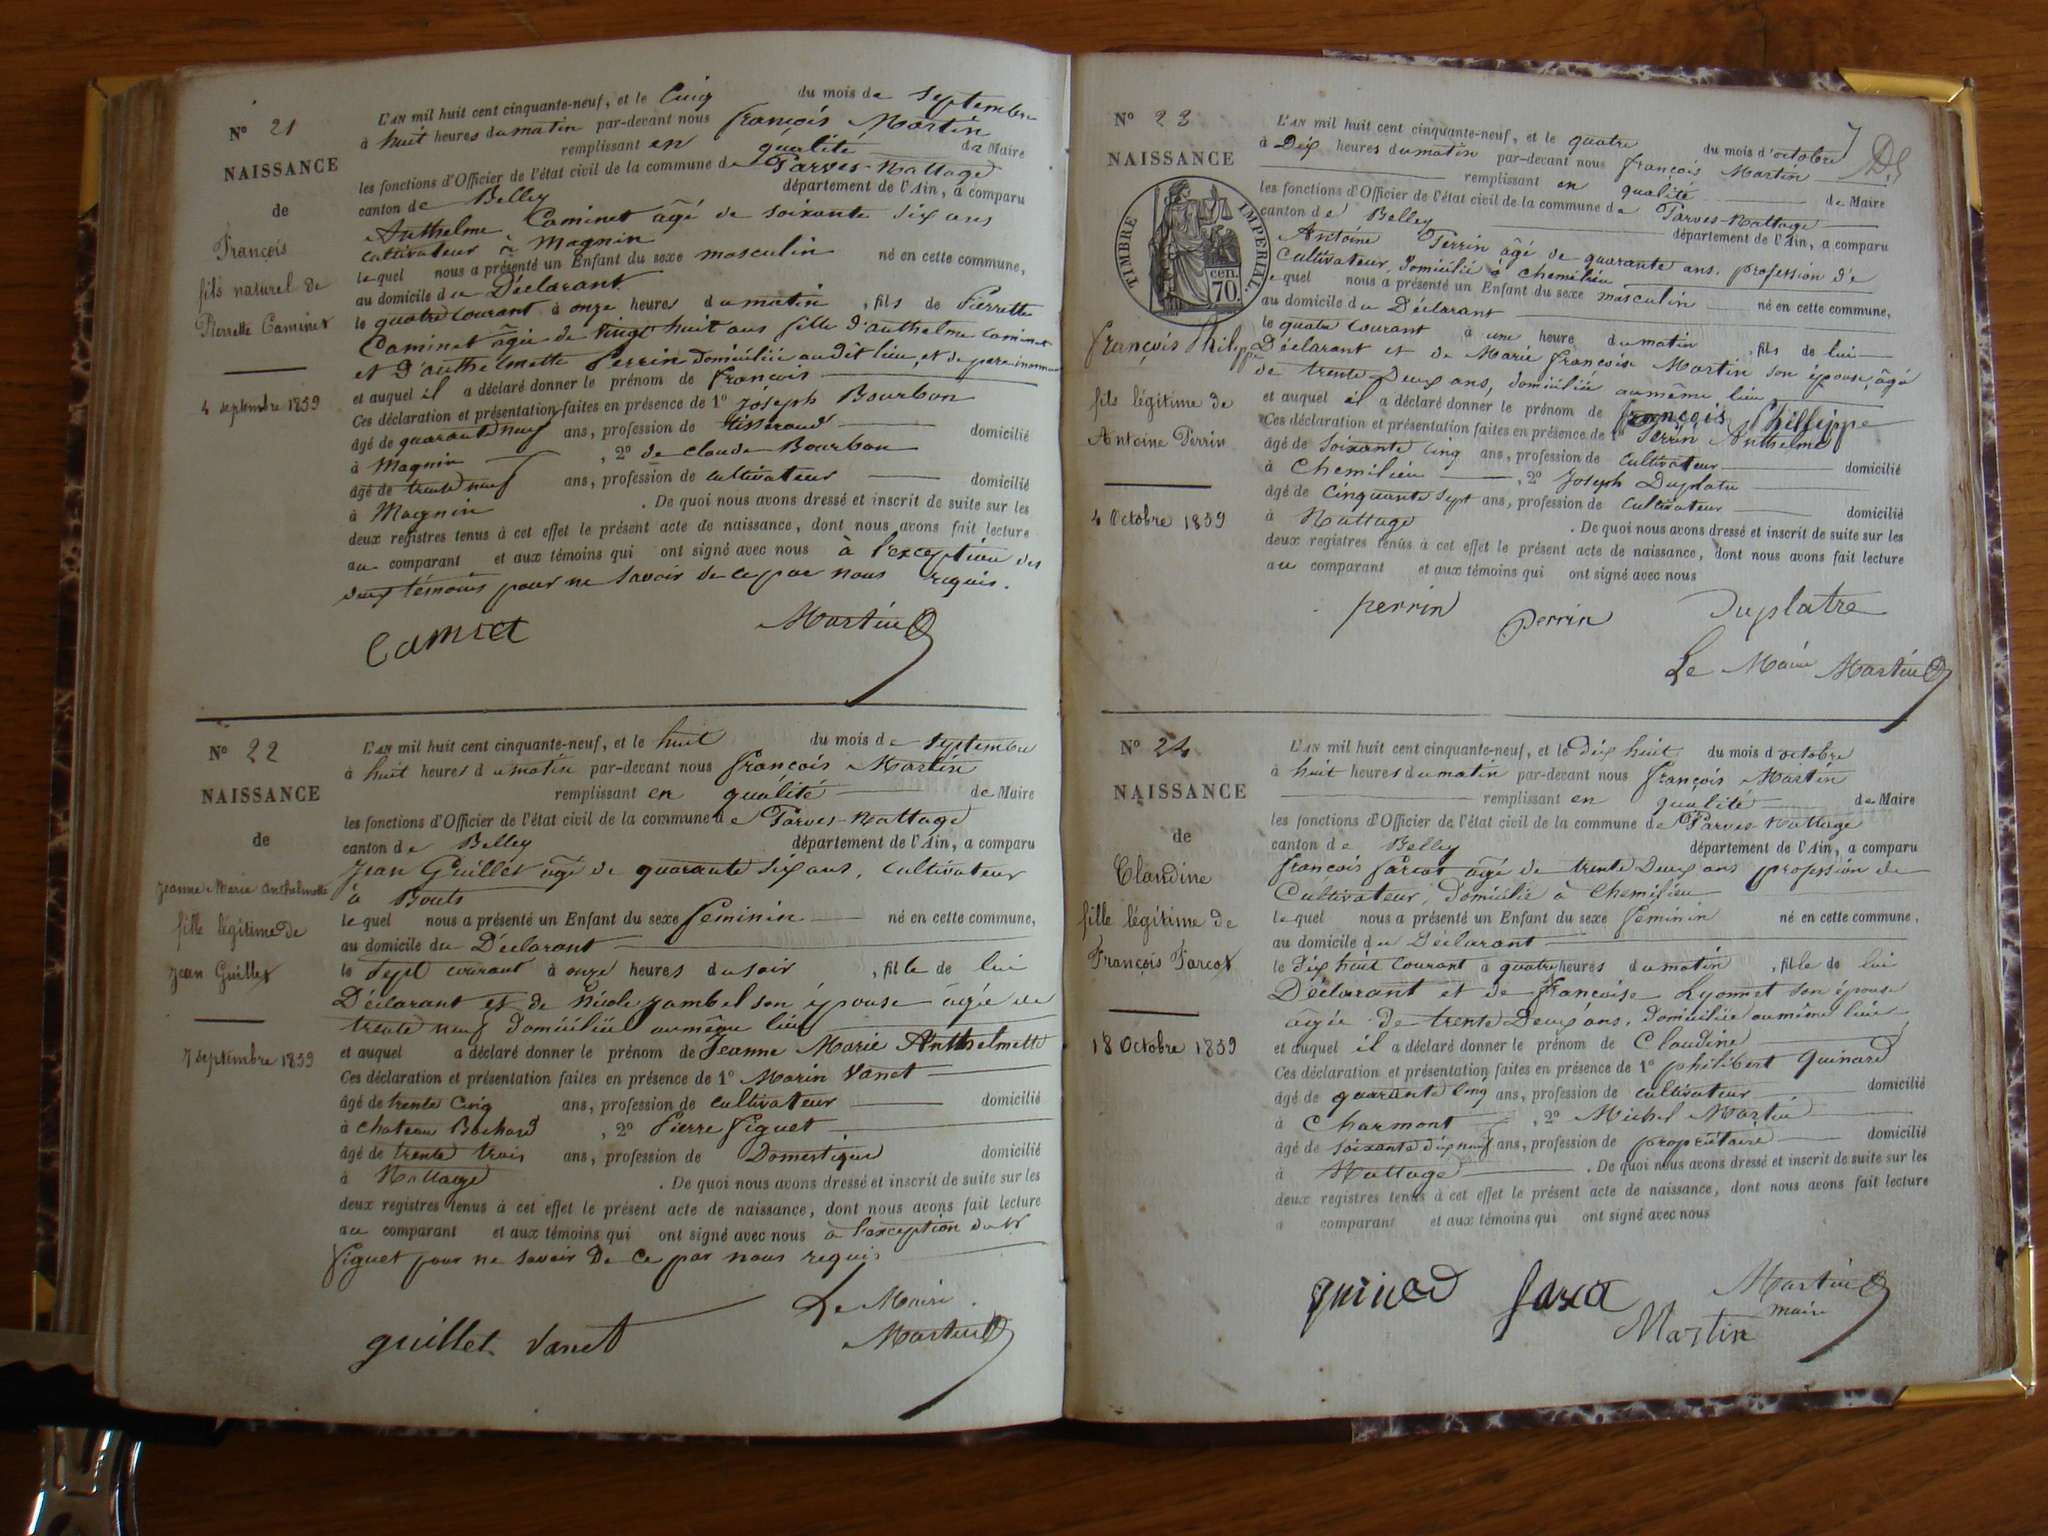 N° 21
NAISSANCE
de
François
fils naturel de
Pierrette Caminet
4 septembre 1859
L'AN mil huit cent cinquante-neuf, et le Cinq du mois de septembre
à huit heures du matin par-devant nous françois Martin
remplissant en qualité de Maire
les fonctions d'Officier de l'état civil de la commune de Parves-Nattage
canton de Belley département de l'Ain, a comparu
Anthelme Caminet âgé de soixante six ans
cultivateur à Magnin
lequel nous a présenté un Enfant du sexe masculin né en cette commune,
au domicile du Déclarant
le quatre courant à onze heures du matin, fils de Pierrette
Caminet âgée de vingt huit ans fille d'anthelme caminet
et D'anthelmette Perrin domiciliée au dit lieu, et de père inconnu
et auquel il a déclaré donner le prénom de françois
Ces déclaration et présentation faites en présence de 1° joseph Bourbon
âgé de quarante neuf ans, profession de tisserand domicilié
à Magnin, 2° de claude Bourbon
âgé de trente neuf ans, profession de cultivateur domicilié
à Magnin. De quoi nous avons dressé et inscrit de suite sur les
deux registres tenus à cet effet le présent acte de naissance, dont nous avons fait lecture
au comparant et aux témoins qui ont signé avec nous à l'exception des
deux témoins pour ne savoir de ce par nous requis.
Caminet Martin
N° 22
NAISSANCE
de
Jeanne Marie anthelmette
fille légitime de
Jean Guillet
7 septembre 1859
L'AN mil huit cent cinquante-neuf, et le huit du mois de septembre
à huit heures du matin par-devant nous françois Martin
remplissant en qualité de Maire
les fonctions d'Officier de l'état civil de la commune de Parves-Nattage
canton de Belley département de l'Ain, a comparu
Jean Guillet âgé de quarante six ans, cultivateur
à Bouts
lequel nous a présenté un Enfant du sexe feminin né en cette commune,
au domicile du Déclarant
le sept courant à onze heures du soir, fille de lui
Déclarant et de Nicole jambel son épouse âgée de
trente neuf domiciliée au même lieu
et auquel a déclaré donner le prénom de Jeanne Marie Anthelmette
Ces déclaration et présentation faites en présence de 1° Marin Vanet
âgé de trente cinq ans, profession de cultivateur domicilié
à chateau Bochard, 2° Pierre Piguet
âgé de trente trois ans, profession de Domestique domicilié
à Nattage. De quoi nous avons dressé et inscrit de suite sur les
deux registres tenus à cet effet le présent acte de naissance, dont nous avons fait lecture
au comparant et aux témoins qui ont signé avec nous à l'exception du
Piguet pour ne savoir De ce par nous requis
Le Maire
guillet Vanet Martin
N° 23
NAISSANCE
TIMBRE IMPERIAL.
70 cen.
françois Philippe
fils légitime de
Antoine Perrin
4 Octobre 1859
L'AN mil huit cent cinquante-neuf, et le quatre du mois d'octobre
à Dix heures du matin par-devant nous françois Martin
remplissant en qualité de Maire
les fonctions d'Officier de l'état civil de la commune de Parves-Nattage
canton de Belley département de l'Ain, a comparu
Antoine Perrin âgé de quarante ans, profession de
Cultivateur, domicilié à chemilieu
lequel nous a présenté un Enfant du sexe masculin né en cette commune,
au domicile du Déclarant
le quatre courant à une heure du matin, fils de lui
Déclarant et de Marie françoise Martin son épouse, âgé
de trente Deux ans, domiciliée au même lieu
et auquel il a déclaré donner le prénom de françois Phillippe
Ces déclaration et présentation faites en présence de 1° Perrin Anthelme
âgé de soixante cinq ans, profession de cultivateur domicilié
à Chemilieu, 2° Joseph Duplatre
âgé de cinquante sept ans, profession de cultivateur domicilié
à Nattage. De quoi nous avons dressé et inscrit de suite sur les
deux registres tenus à cet effet le présent acte de naissance, dont nous avons fait lecture
au comparant et aux témoins qui ont signé avec nous
perrin perrin Duplatre
Le Maire Martin
N° 24
NAISSANCE
de
Claudine
fille légitime de
François Farcot
18 Octobre 1859
L'AN mil huit cent cinquante-neuf, et le dix huit du mois d'octobre
à huit heures du matin par-devant nous françois Martin
remplissant en qualité de Maire
les fonctions d'Officier de l'état civil de la commune de Parves-Nattage
canton de Belley département de l'Ain, a comparu
françois farcot âgé de trente Deux ans profession de
Cultivateur, Domicilié à Chemilieu
lequel nous a présenté un Enfant du sexe feminin né en cette commune,
au domicile du Déclarant
le dix huit courant à quatre heures du matin, fille de lui
Déclarant et de françoise Lyonnet son épouse
âgée de trente Deux ans, domiciliée au même lieu
et auquel il a déclaré donner le prénom de Claudine
Ces déclaration et présentation faites en présence de 1° philibert Quinard
âgé de quarante cinq ans, profession de cultivateur domicilié
à Charmont, 2° Michel Martin
âgé de soixante dix neuf ans, profession de propriétaire domicilié
à Nattage. De quoi nous avons dressé et inscrit de suite sur les
deux registres tenus à cet effet le présent acte de naissance, dont nous avons fait lecture
a comparant et aux témoins qui ont signé avec nous
quinard farcot Martin
Martin maire